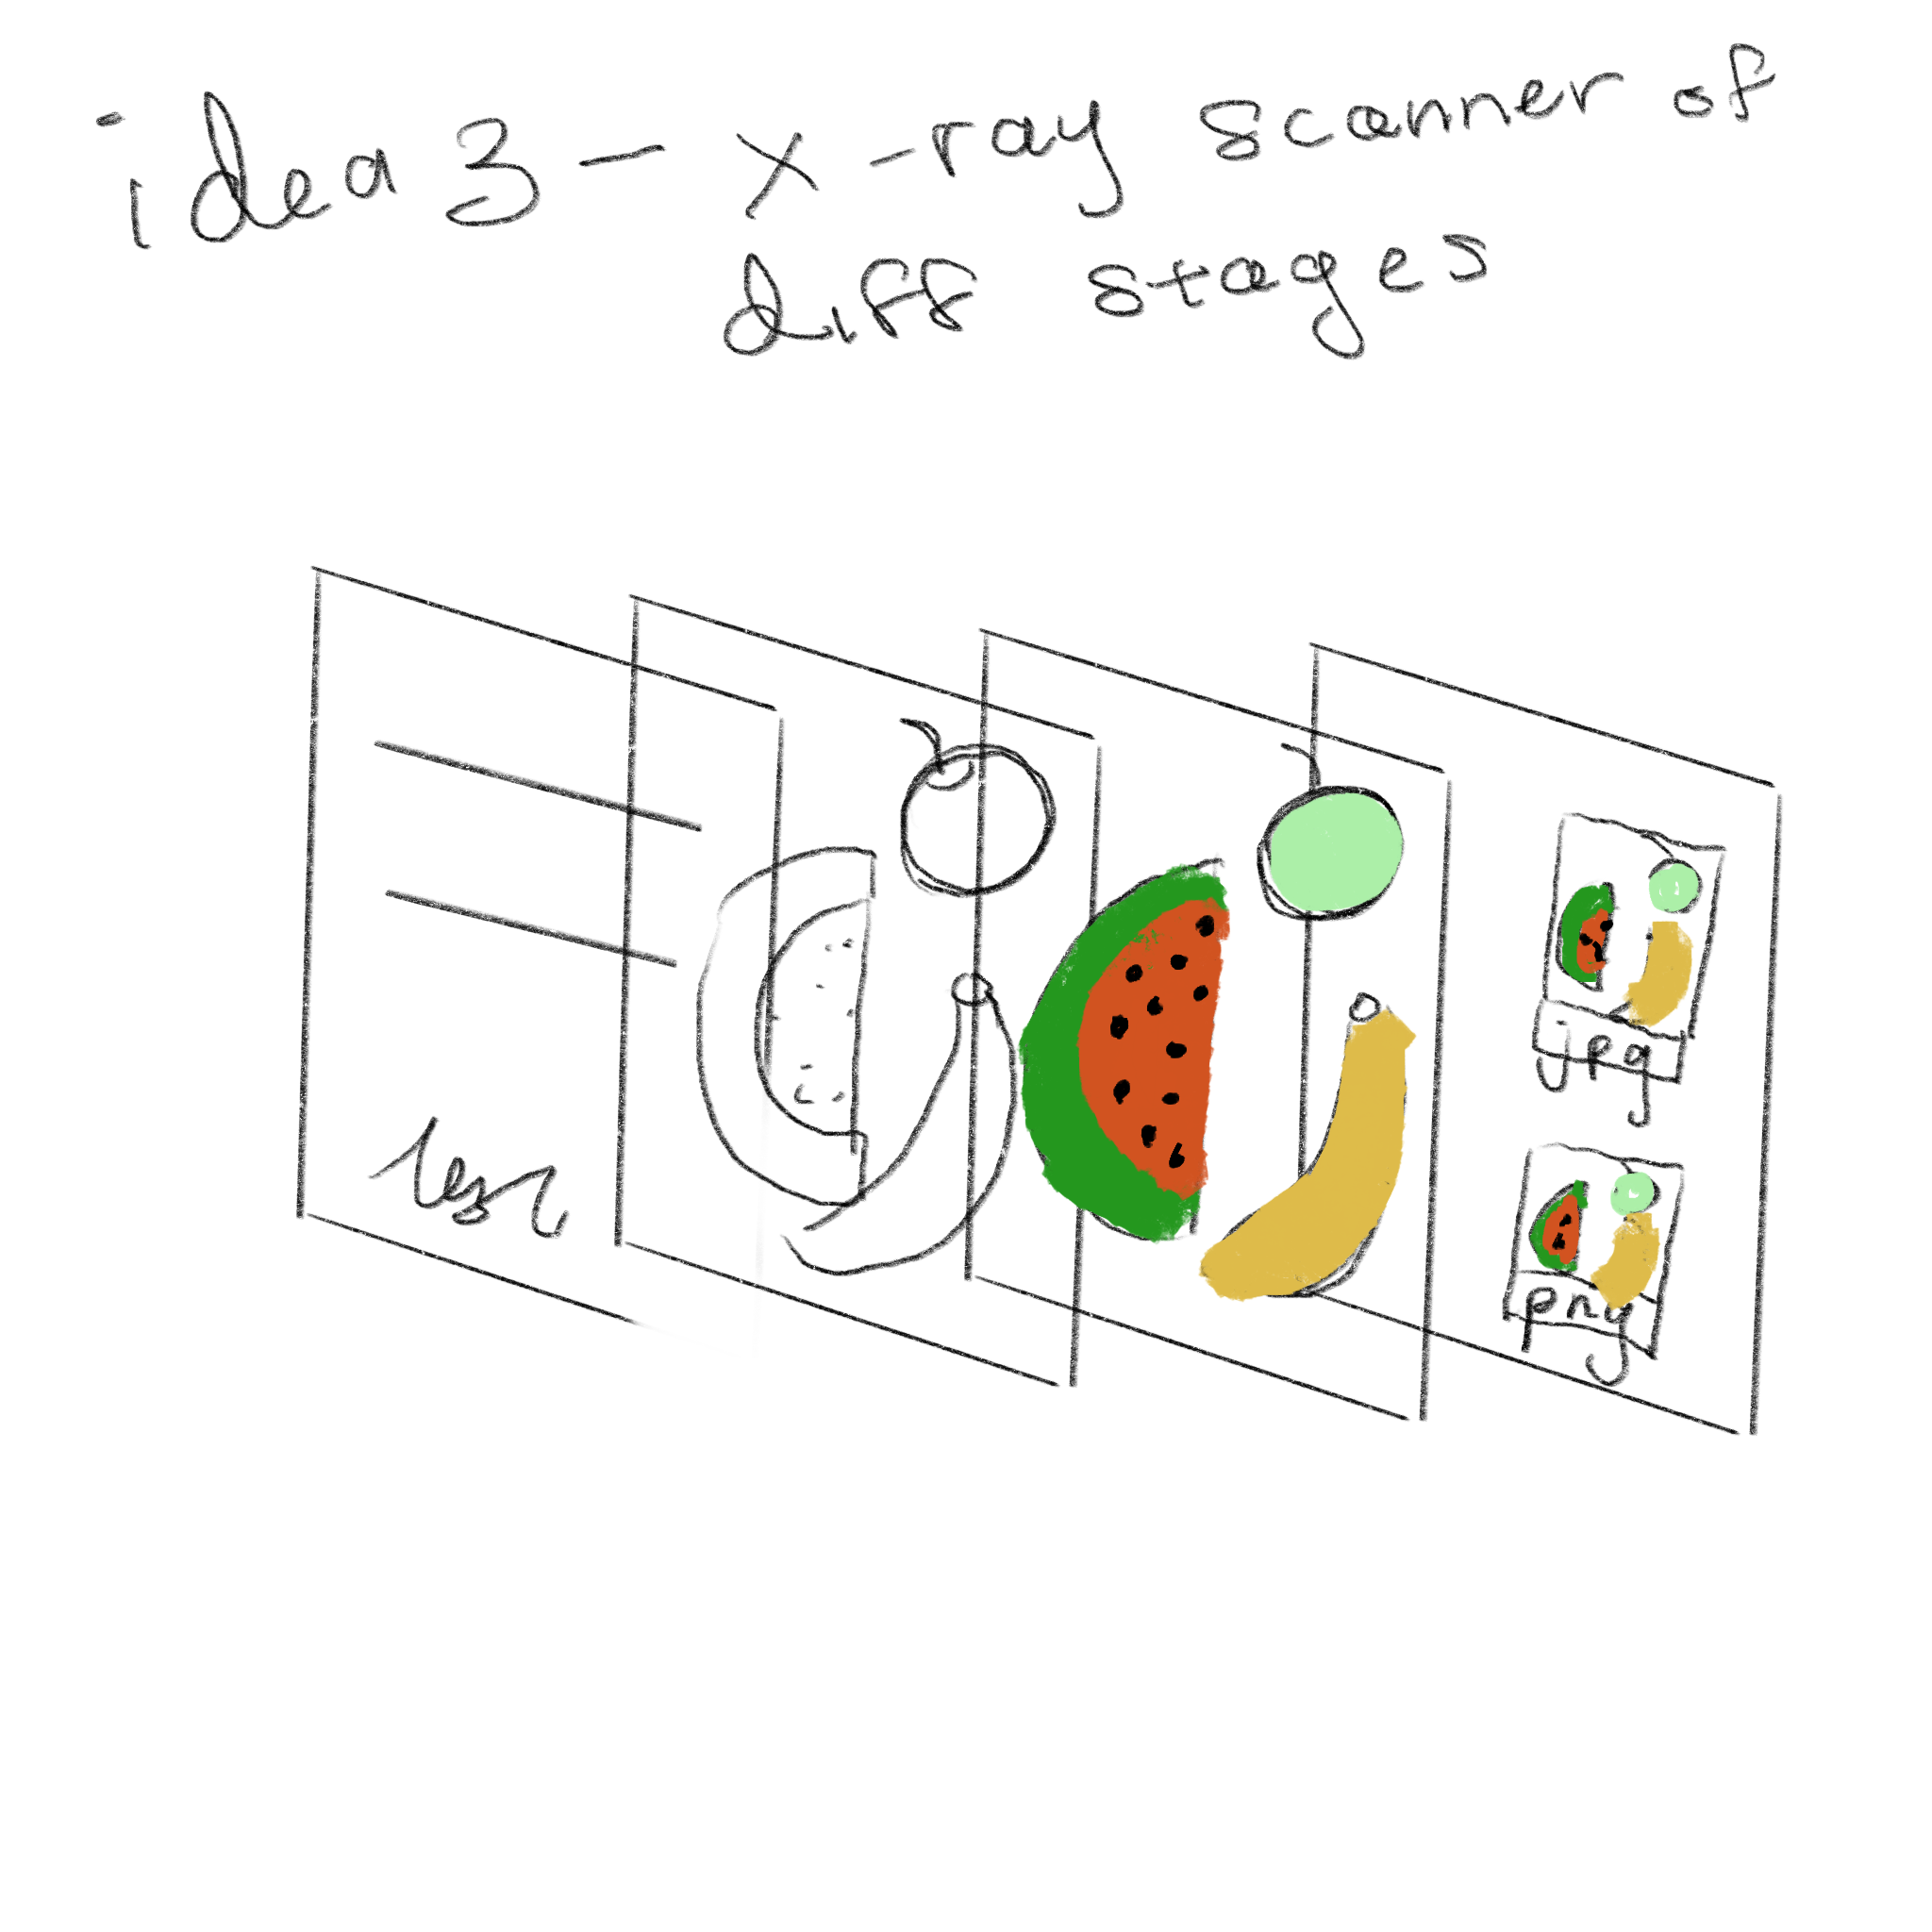 idea 3 - x-ray scanner of
diff stages
jpg
png